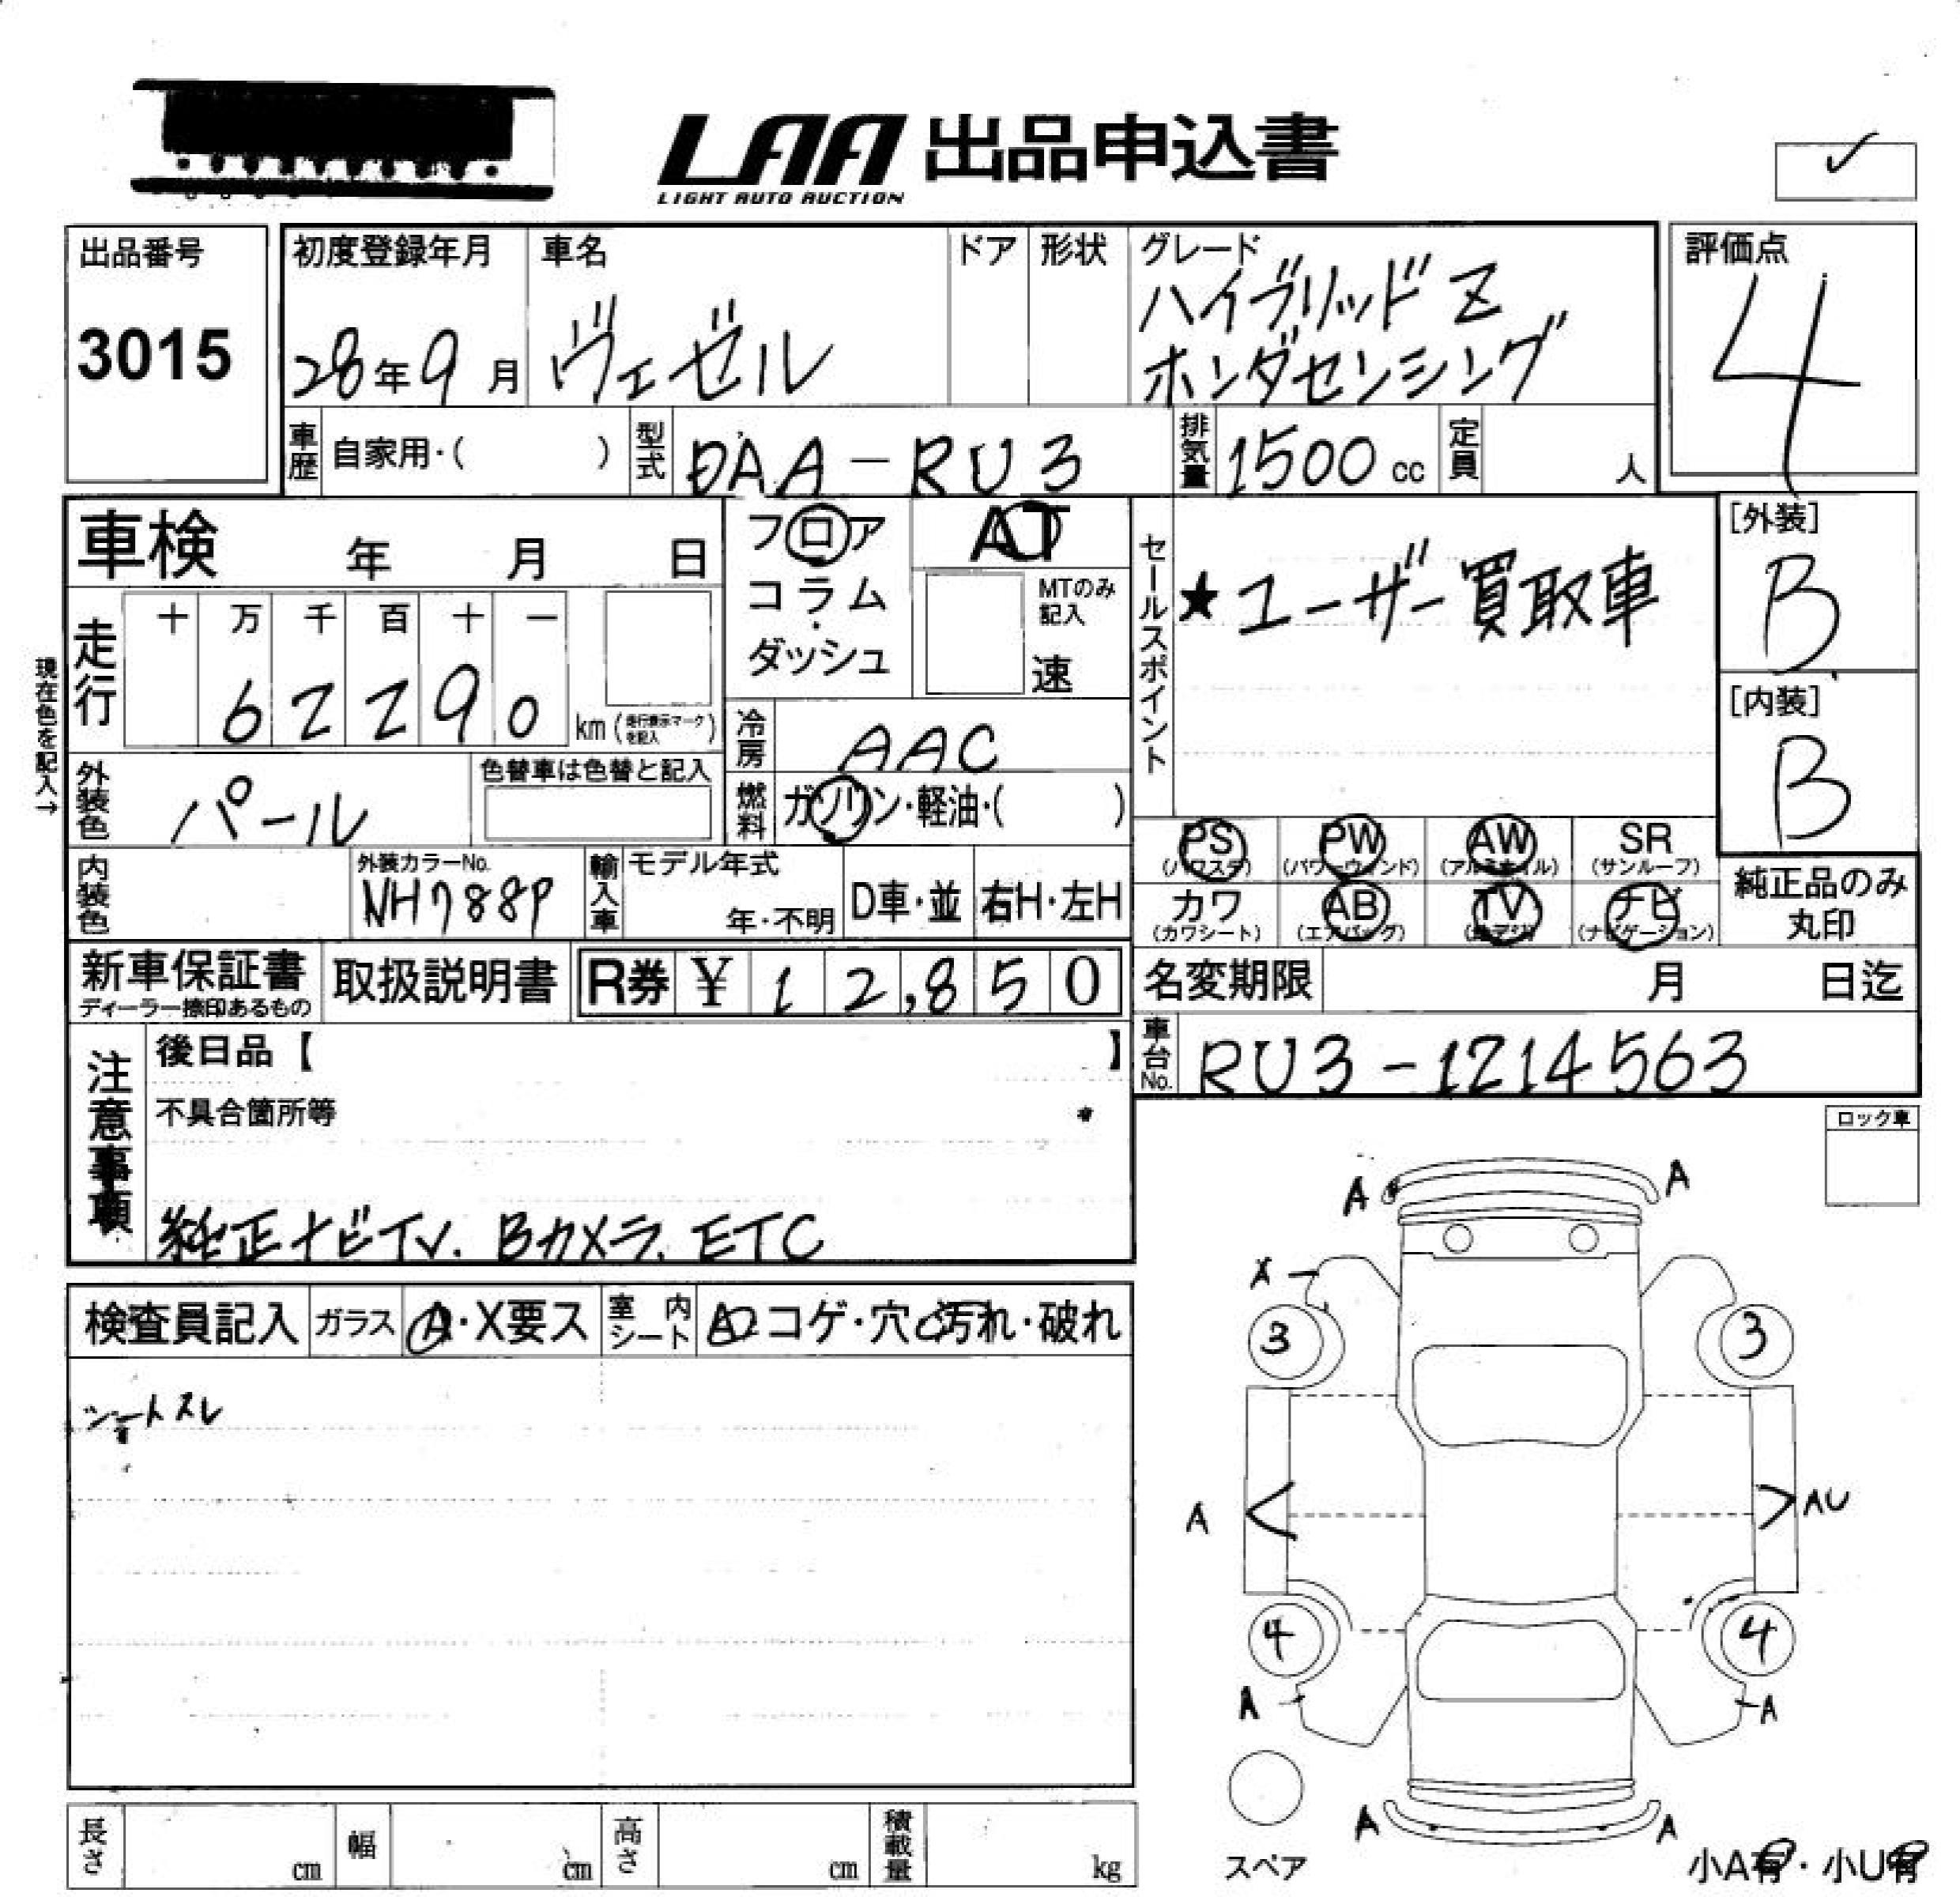 LAA 出品申込書
LIGHT AUTO AUCTION
出品番号
3015
初度登録年月
28年9月
車名
ヴェゼル
ドア
形状
グレード
ハイブリッドZ
ホンダセンシング
評価点
4
車歴
自家用・( )
型式
DAA-RU3
排気量
1500 cc
定員
人
車検 年 月 日
フロア
コラム
ダッシュ
AT
MTのみ
記入
速
セールスポイント
★ユーザー買取車
[外装]
B
[内装]
B
現在色を記入→
走行
十 万 千 百 十 一
6 2 2 9 0
km (走行表示マークを記入)
冷房
AAC
外装色
パール
色替車は色替と記入
燃料
ガソリン・軽油・( )
PS
(パワステ)
PW
(パワーウィンド)
AW
(アルミホイル)
SR
(サンルーフ)
カワ
(カワシート)
AB
(エアバッグ)
TV
ナビ
(ナビゲーション)
純正品のみ
丸印
内装色
外装カラーNo.
NH788P
輸入車
モデル年式
年・不明
D車・並
右H・左H
新車保証書
ディーラー捺印あるもの
取扱説明書
R券 ¥ 12,850
名変期限 月 日迄
車台No.
RU3-1214563
注意事項
後日品【 】
不具合箇所等
純正ナビTV. Bカメラ. ETC
ロック車
検査員記入
ガラス
A・X要ス
室内
シート
コゲ・穴・汚れ・破れ
シートスレ
A A
X
3 3
A AU
4 4
A A
スペア
A A
小A有・小U有
長さ cm
幅 cm
高さ cm
積載量 kg